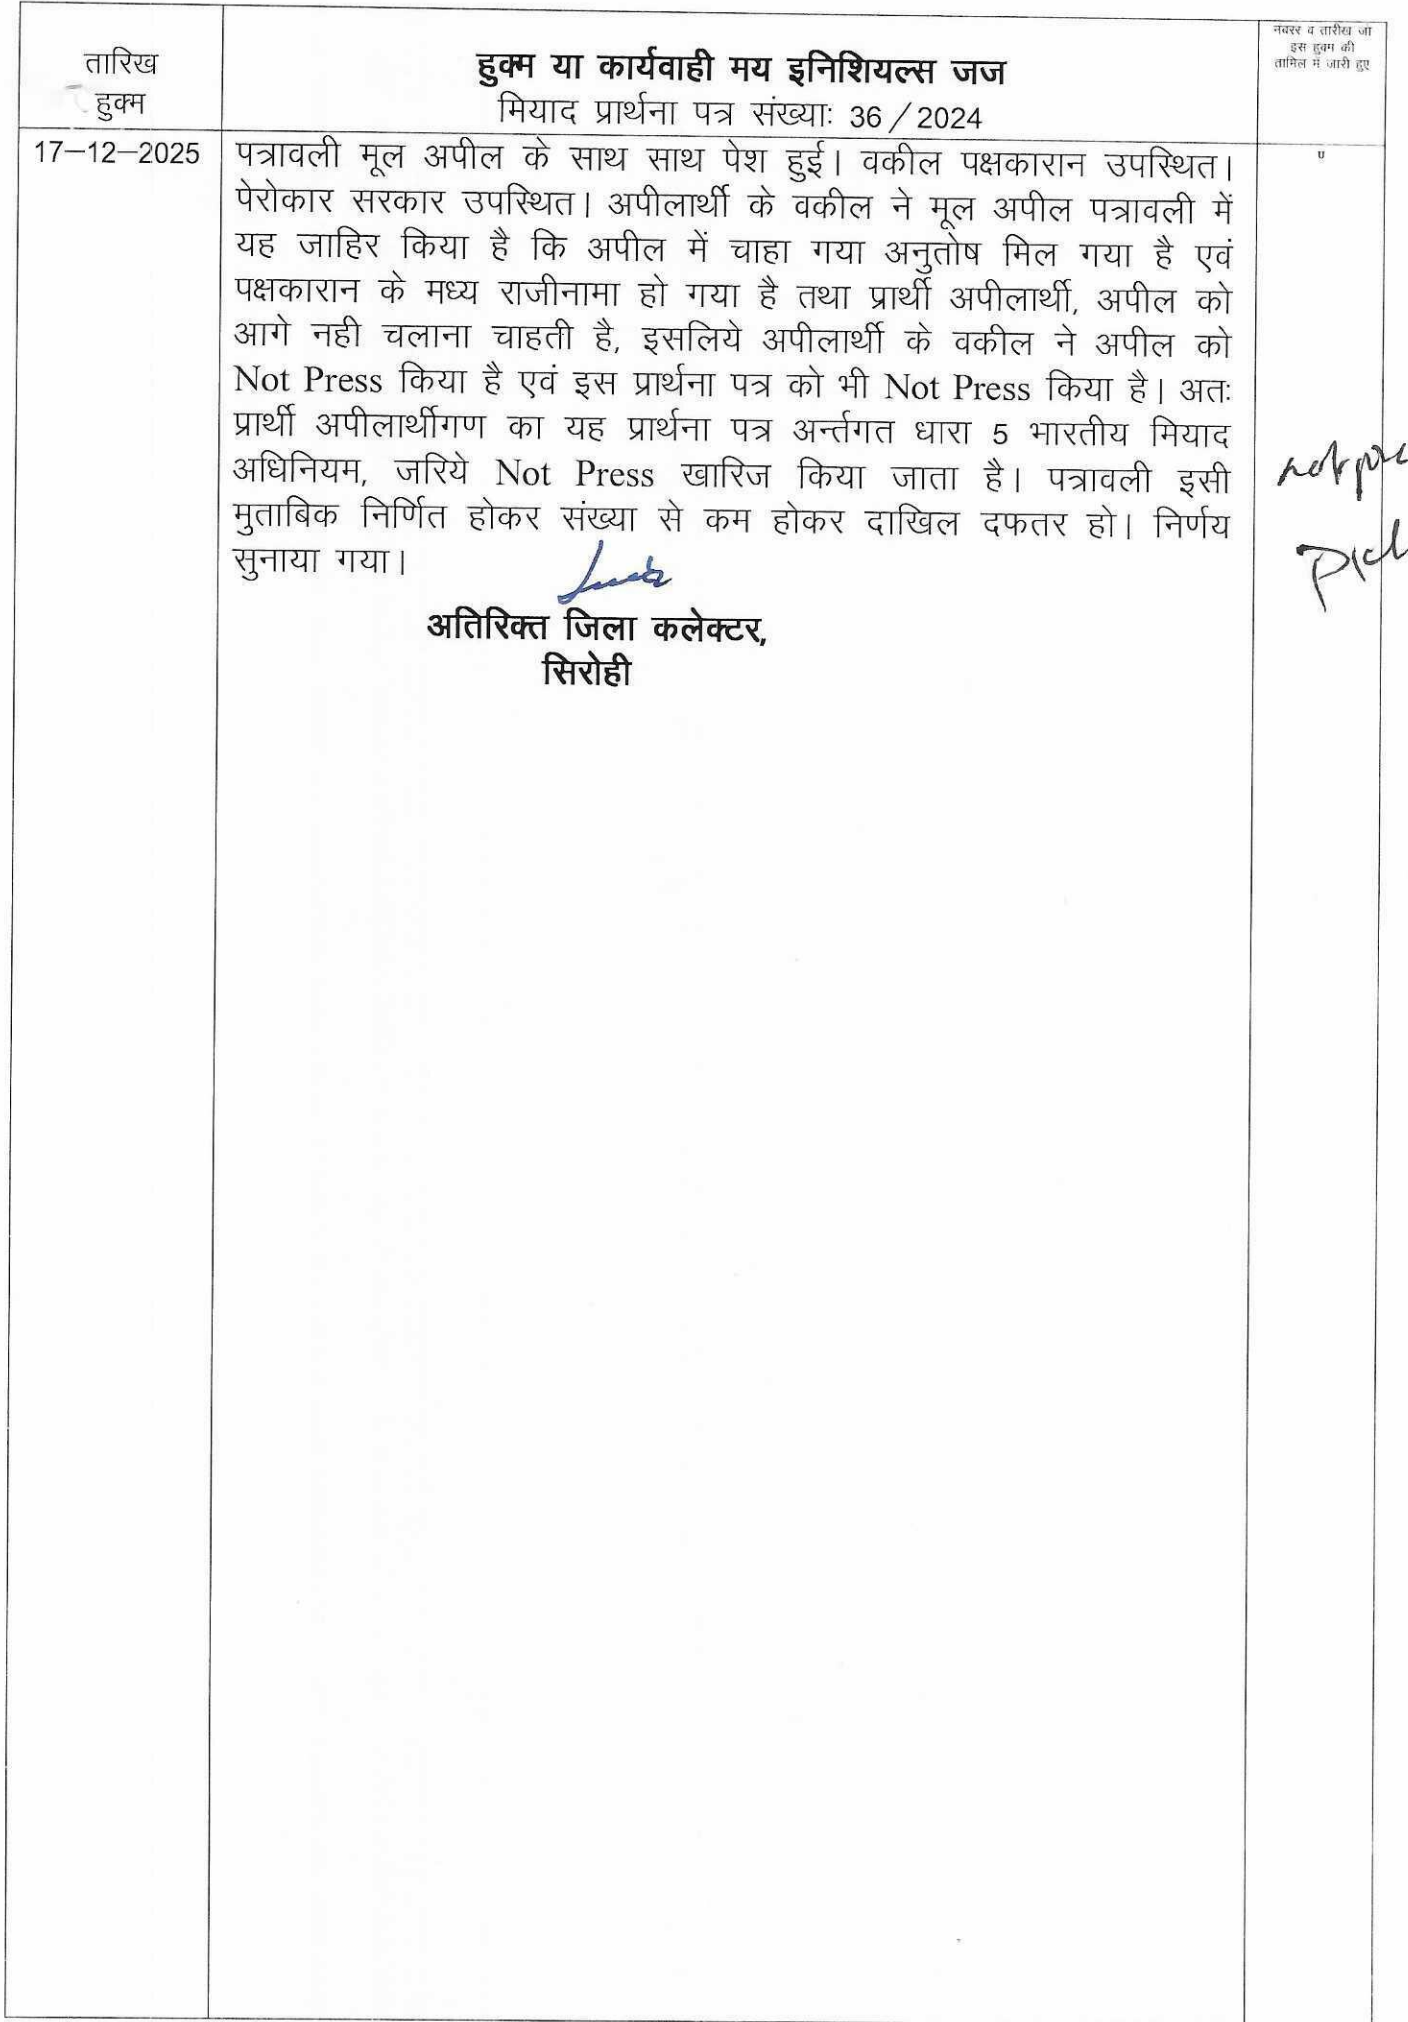 तारिख
हुक्म
हुक्म या कार्यवाही मय इनिशियल्स जज
मियाद प्रार्थना पत्र संख्याः 36/2024
नंबरर व तारीख जो
इस हुक्म की
तामिल में जारी हुए
17–12–2025
पत्रावली मूल अपील के साथ साथ पेश हुई। वकील पक्षकारान उपस्थित।
पेरोकार सरकार उपस्थित। अपीलार्थी के वकील ने मूल अपील पत्रावली में
यह जाहिर किया है कि अपील में चाहा गया अनुतोष मिल गया है एवं
पक्षकारान के मध्य राजीनामा हो गया है तथा प्रार्थी अपीलार्थी, अपील को
आगे नही चलाना चाहती है, इसलिये अपीलार्थी के वकील ने अपील को
Not Press किया है एवं इस प्रार्थना पत्र को भी Not Press किया है। अतः
प्रार्थी अपीलार्थीगण का यह प्रार्थना पत्र अर्न्तगत धारा 5 भारतीय मियाद
अधिनियम, जरिये Not Press खारिज किया जाता है। पत्रावली इसी
मुताबिक निर्णित होकर संख्या से कम होकर दाखिल दफतर हो। निर्णय
सुनाया गया।
not
अतिरिक्त जिला कलेक्टर,
सिरोही